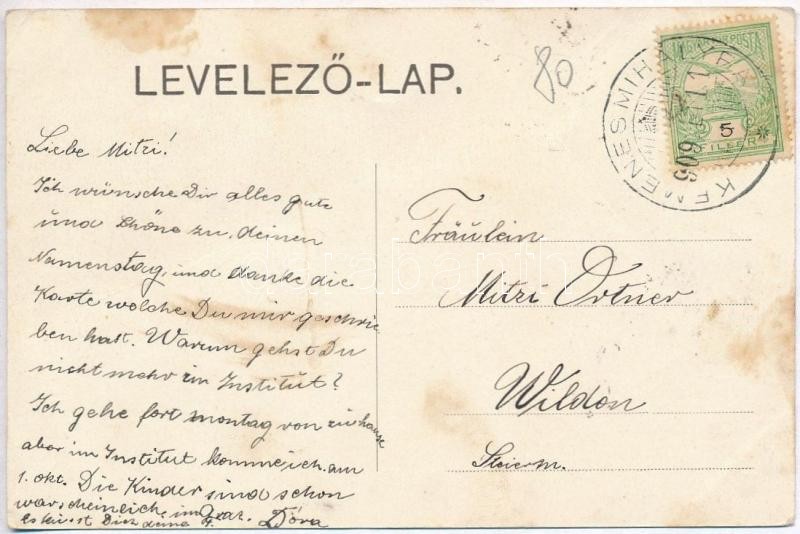 LEVELEZŐ-LAP.
80
KEMENESMIHÁLYFA
909
MAGYAR KIR. POSTA
5
FILLER
Liebe Mitzi!
Ich wünsche Dir alles gute
und schöne zu deinen
Namenstag, und danke die
Karte welche Du mir geschrie
ben hast. Warum gehst Du
nicht mehr in Institut?
Ich gehe fort montag von zu hause
aber im Institut komme ich am
1. okt. Die Kinder sind schon
warscheinlich im Graz.
Es küsst Dich deine Dóra
Fräulein
Mitzi Ortner
Wildon
Steierm.